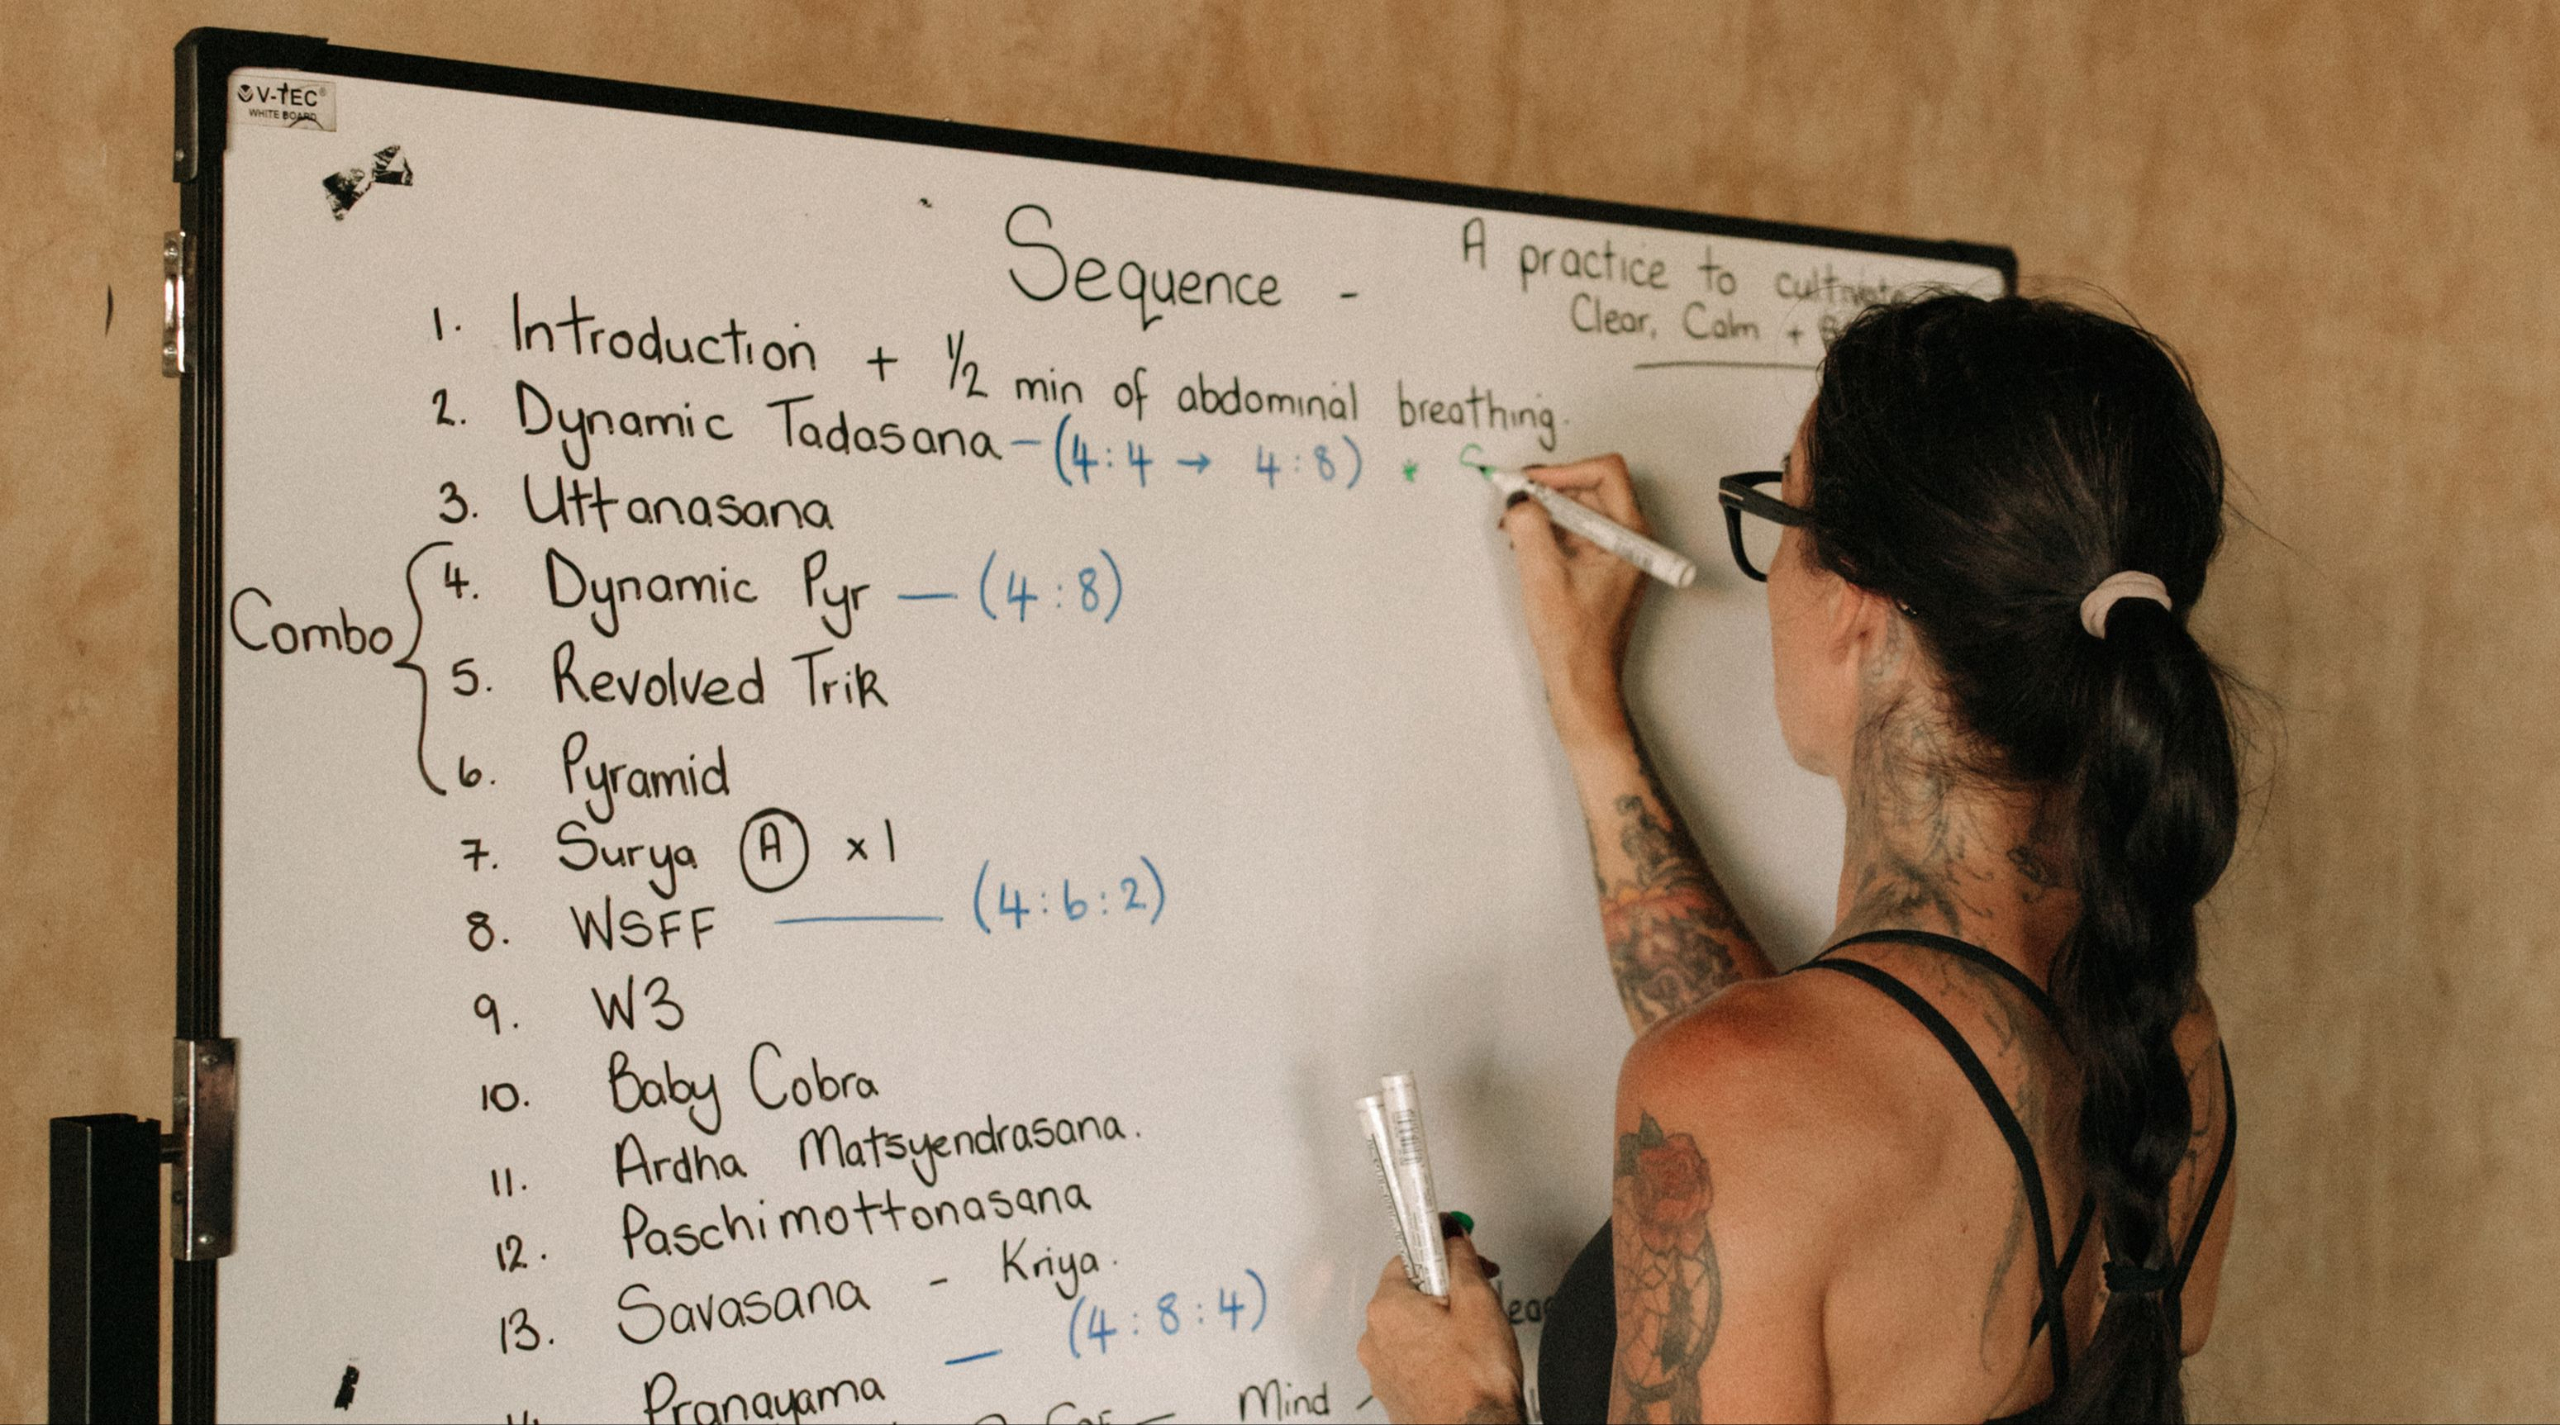 V-TEC®
WHITE BOARD
Sequence - A practice to cultivate
Clear, Calm +
1. Introduction + 1/2 min of abdominal breathing.
2. Dynamic Tadasana - (4:4 → 4:8) *
3. Uttanasana
Combo
4. Dynamic Pyr — (4:8)
5. Revolved Trik
6. Pyramid
7. Surya A x 1
8. WSFF — (4:6:2)
9. W3
10. Baby Cobra
11. Ardha Matsyendrasana.
12. Paschimottonasana
13. Savasana - Kriya.
Pranayama — (4:8:4)
Mind